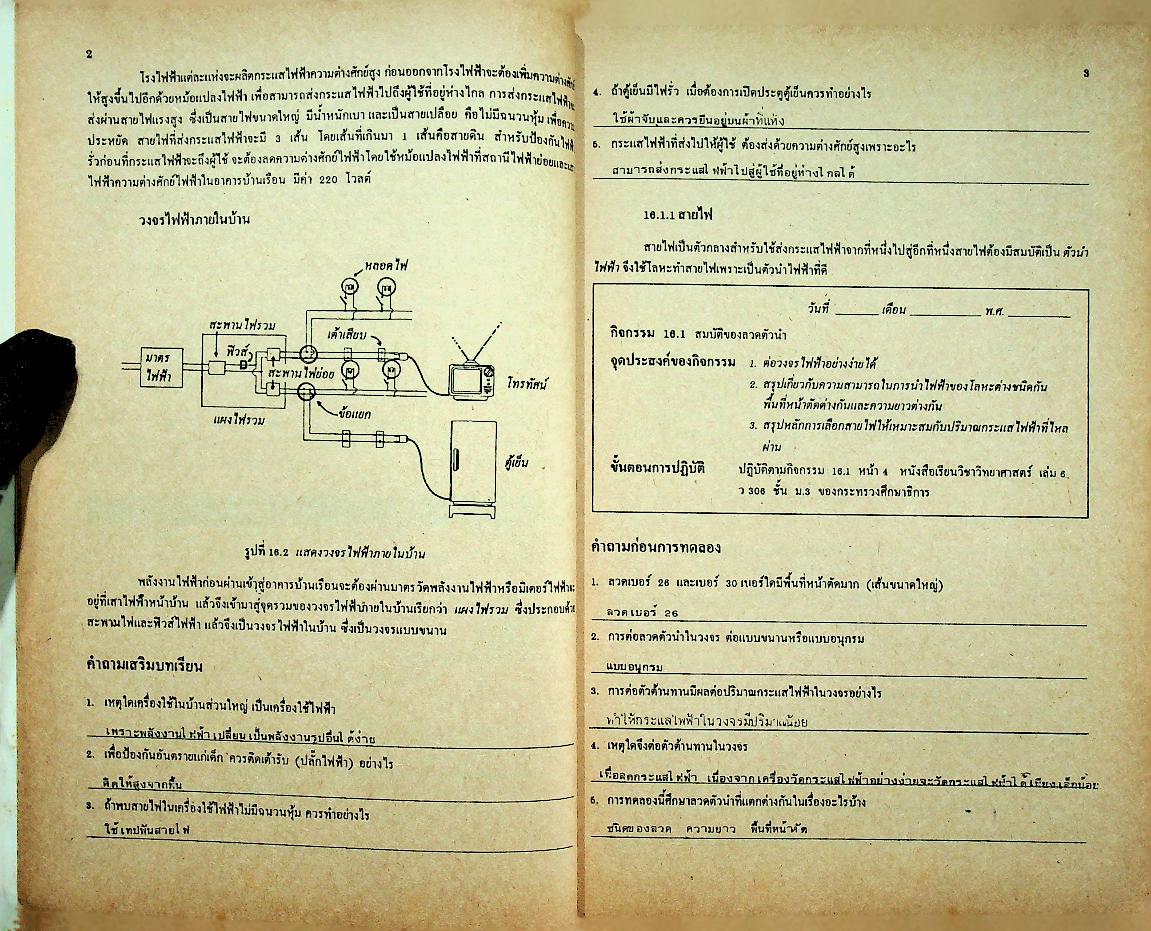 2
โรงไฟฟ้าแต่ละแห่งจะผลิตกระแสไฟฟ้าความต่างศักย์สูง ก่อนออกจากโรงไฟฟ้าจะต้องเพิ่มความต่างศักย์
ให้สูงขึ้นไปอีกด้วยหม้อแปลงไฟฟ้า เพื่อสามารถส่งกระแสไฟฟ้าไปถึงผู้ใช้ที่อยู่ห่างไกล การส่งกระแสไฟฟ้าจะ
ส่งผ่านสายไฟแรงสูง ซึ่งเป็นสายไฟขนาดใหญ่ มีน้ำหนักเบา และเป็นสายเปลือย คือไม่มีฉนวนหุ้ม เพื่อความ
ประหยัด สายไฟที่ส่งกระแสไฟฟ้าจะมี 3 เส้น โดยเส้นที่เกินมา 1 เส้นคือสายดิน สำหรับป้องกันไฟฟ้า
รั่วก่อนที่กระแสไฟฟ้าจะถึงผู้ใช้ จะต้องลดความต่างศักย์ไฟฟ้าโดยใช้หม้อแปลงไฟฟ้าที่สถานีไฟฟ้าย่อยและเสา
ไฟฟ้าความต่างศักย์ไฟฟ้าในอาคารบ้านเรือน มีค่า 220 โวลต์
วงจรไฟฟ้าภายในบ้าน
หลอดไฟ
สะพานไฟรวม
ฟิวส์
เต้าเสียบ
มาตร
ไฟฟ้า
สะพานไฟย่อย
โทรทัศน์
แผงไฟรวม
ข้อแยก
ตู้เย็น
รูปที่ 16.2 แสดงวงจรไฟฟ้าภายในบ้าน
พลังงานไฟฟ้าก่อนผ่านเข้าสู่อาคารบ้านเรือนจะต้องผ่านมาตรวัดพลังงานไฟฟ้าหรือมิเตอร์ไฟฟ้าจะ
อยู่ที่เสาไฟฟ้าหน้าบ้าน แล้วจึงเข้ามาสู่จุดรวมของวงจรไฟฟ้าภายในบ้านเรียกว่า แผงไฟรวม ซึ่งประกอบด้วย
สะพานไฟและฟิวส์ไฟฟ้า แล้วจึงเป็นวงจรไฟฟ้าในบ้าน ซึ่งเป็นวงจรแบบขนาน
คำถามเสริมบทเรียน
1. เหตุใดเครื่องใช้ในบ้านส่วนใหญ่ เป็นเครื่องใช้ไฟฟ้า
เพราะพลังงานไฟฟ้าเปลี่ยนเป็นพลังงานรูปอื่นได้ง่าย
2. เพื่อป้องกันอันตรายแก่เด็ก ควรติดเต้ารับ (ปลั๊กไฟฟ้า) อย่างไร
ติดให้สูงจากพื้น
3. ถ้าพบสายไฟในเครื่องใช้ไฟฟ้าไม่มีฉนวนหุ้ม ควรทำอย่างไร
ใช้เทปพันสายไฟ
3
4. ถ้าตู้เย็นมีไฟรั่ว เมื่อต้องการเปิดประตูตู้เย็นควรทำอย่างไร
ใช้ผ้าจับและควรยืนอยู่บนผ้าที่แห้ง
5. กระแสไฟฟ้าที่ส่งไปให้ผู้ใช้ ต้องส่งด้วยความต่างศักย์สูงเพราะอะไร
สามารถส่งกระแสไฟฟ้าไปสู่ผู้ใช้ที่อยู่ห่างไกลได้
16.1.1 สายไฟ
สายไฟเป็นตัวกลางสำหรับใช้ส่งกระแสไฟฟ้าจากที่หนึ่งไปสู่อีกที่หนึ่งสายไฟต้องมีสมบัติเป็น ตัวนำ
ไฟฟ้า จึงใช้โลหะทำสายไฟเพราะเป็นตัวนำไฟฟ้าที่ดี
วันที่ ______ เดือน __________ พ.ศ. _________
กิจกรรม 16.1 สมบัติของลวดตัวนำ
จุดประสงค์ของกิจกรรม 1. ต่อวงจรไฟฟ้าอย่างง่ายได้
2. สรุปเกี่ยวกับความสามารถในการนำไฟฟ้าของโลหะต่างชนิดกัน
พื้นที่หน้าตัดต่างกันและความยาวต่างกัน
3. สรุปหลักการเลือกสายไฟให้เหมาะสมกับปริมาณกระแสไฟฟ้าที่ไหล
ผ่าน
ขั้นตอนการปฏิบัติ ปฏิบัติตามกิจกรรม 16.1 หน้า 4 หนังสือเรียนวิชาวิทยาศาสตร์ เล่ม 6
ว 306 ชั้น ม.3 ของกระทรวงศึกษาธิการ
คำถามก่อนการทดลอง
1. ลวดเบอร์ 26 และเบอร์ 30 เบอร์ใดมีพื้นที่หน้าตัดมาก (เส้นขนาดใหญ่)
ลวดเบอร์ 26
2. การต่อลวดตัวนำในวงจร ต่อแบบขนานหรือแบบอนุกรม
แบบอนุกรม
3. การต่อตัวต้านทานมีผลต่อปริมาณกระแสไฟฟ้าในวงจรอย่างไร
ทำให้กระแสไฟฟ้าในวงจรมีปริมาณน้อย
4. เหตุใดจึงต่อตัวต้านทานในวงจร
เพื่อลดกระแสไฟฟ้า เนื่องจากเครื่องวัดกระแสไฟฟ้าอย่างง่ายจะวัดกระแสไฟฟ้าได้เพียงเล็กน้อย
5. การทดลองนี้ศึกษาลวดตัวนำที่แตกต่างกันในเรื่องอะไรบ้าง
ชนิดของลวด ความยาว พื้นที่หน้าตัด